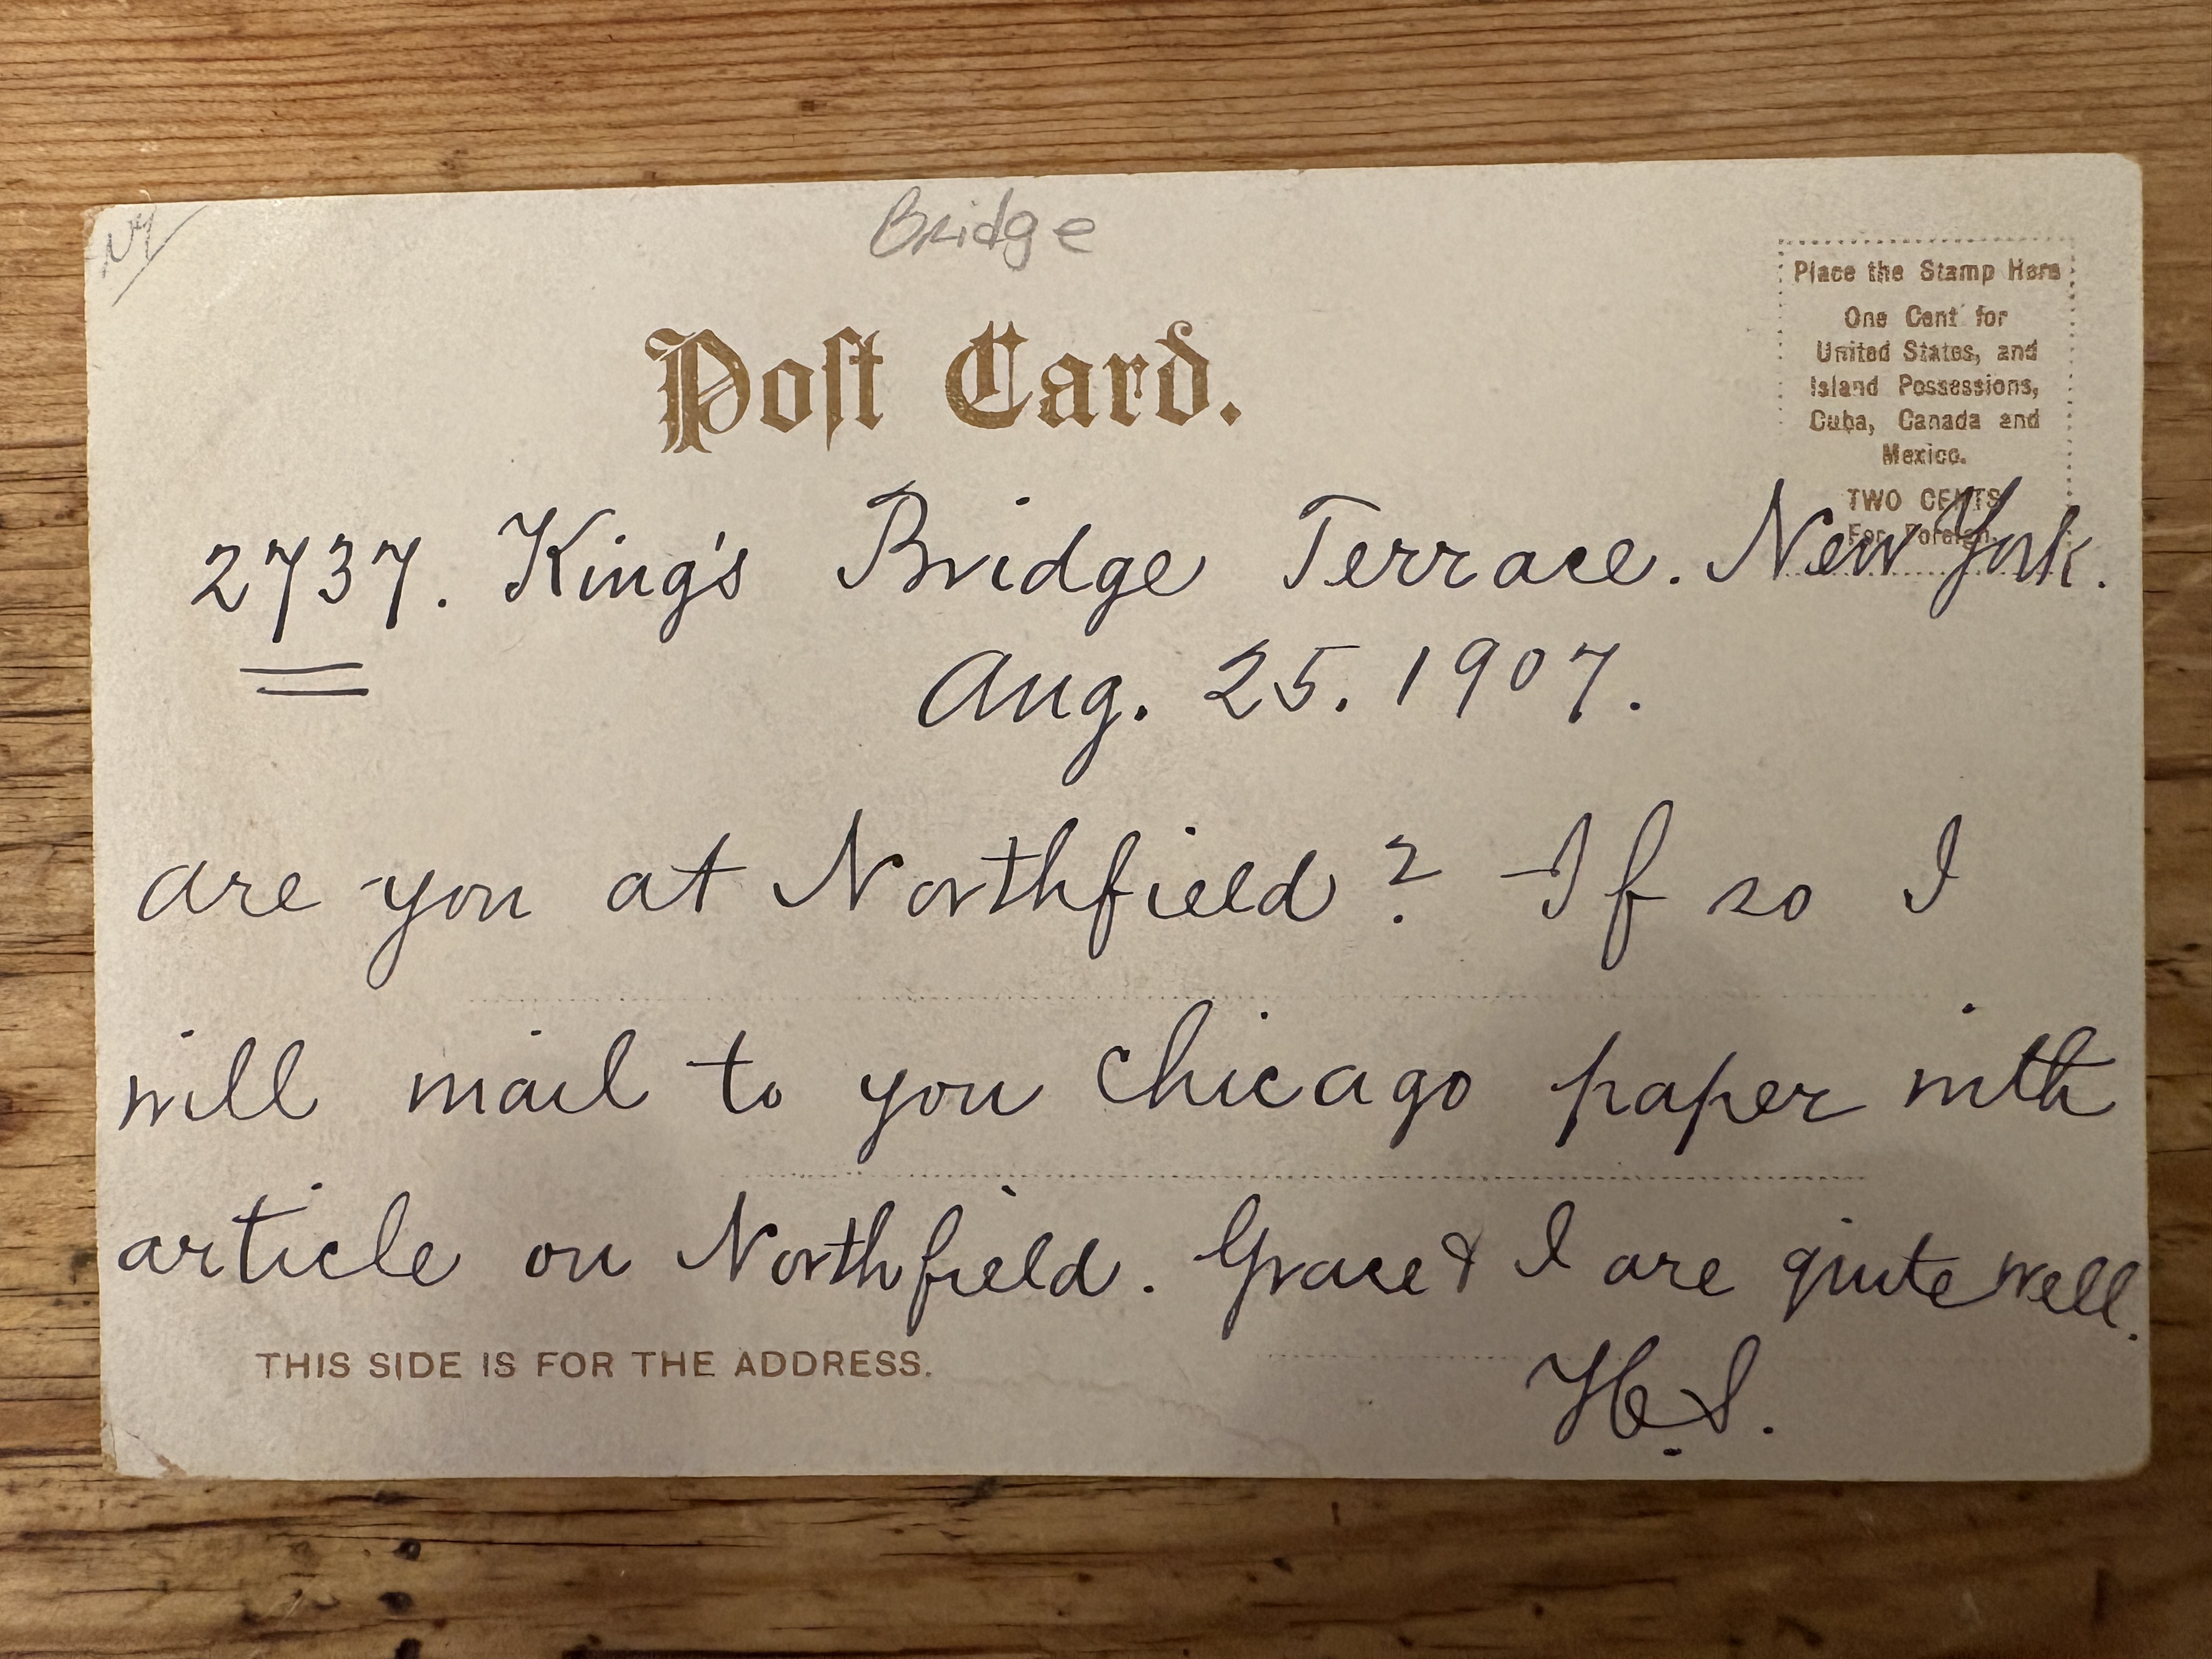 NY
Bridge
Post Card.
Place the Stamp Here
One Cent for
United States, and
Island Possessions,
Cuba, Canada and
Mexico.
TWO CENTS
For Foreign.
2737. King's Bridge Terrace. New York.
Aug. 25. 1907.
are you at Northfield? If so I
will mail to you Chicago paper with
article on Northfield. Grace & I are quite well.
H.S.
THIS SIDE IS FOR THE ADDRESS.